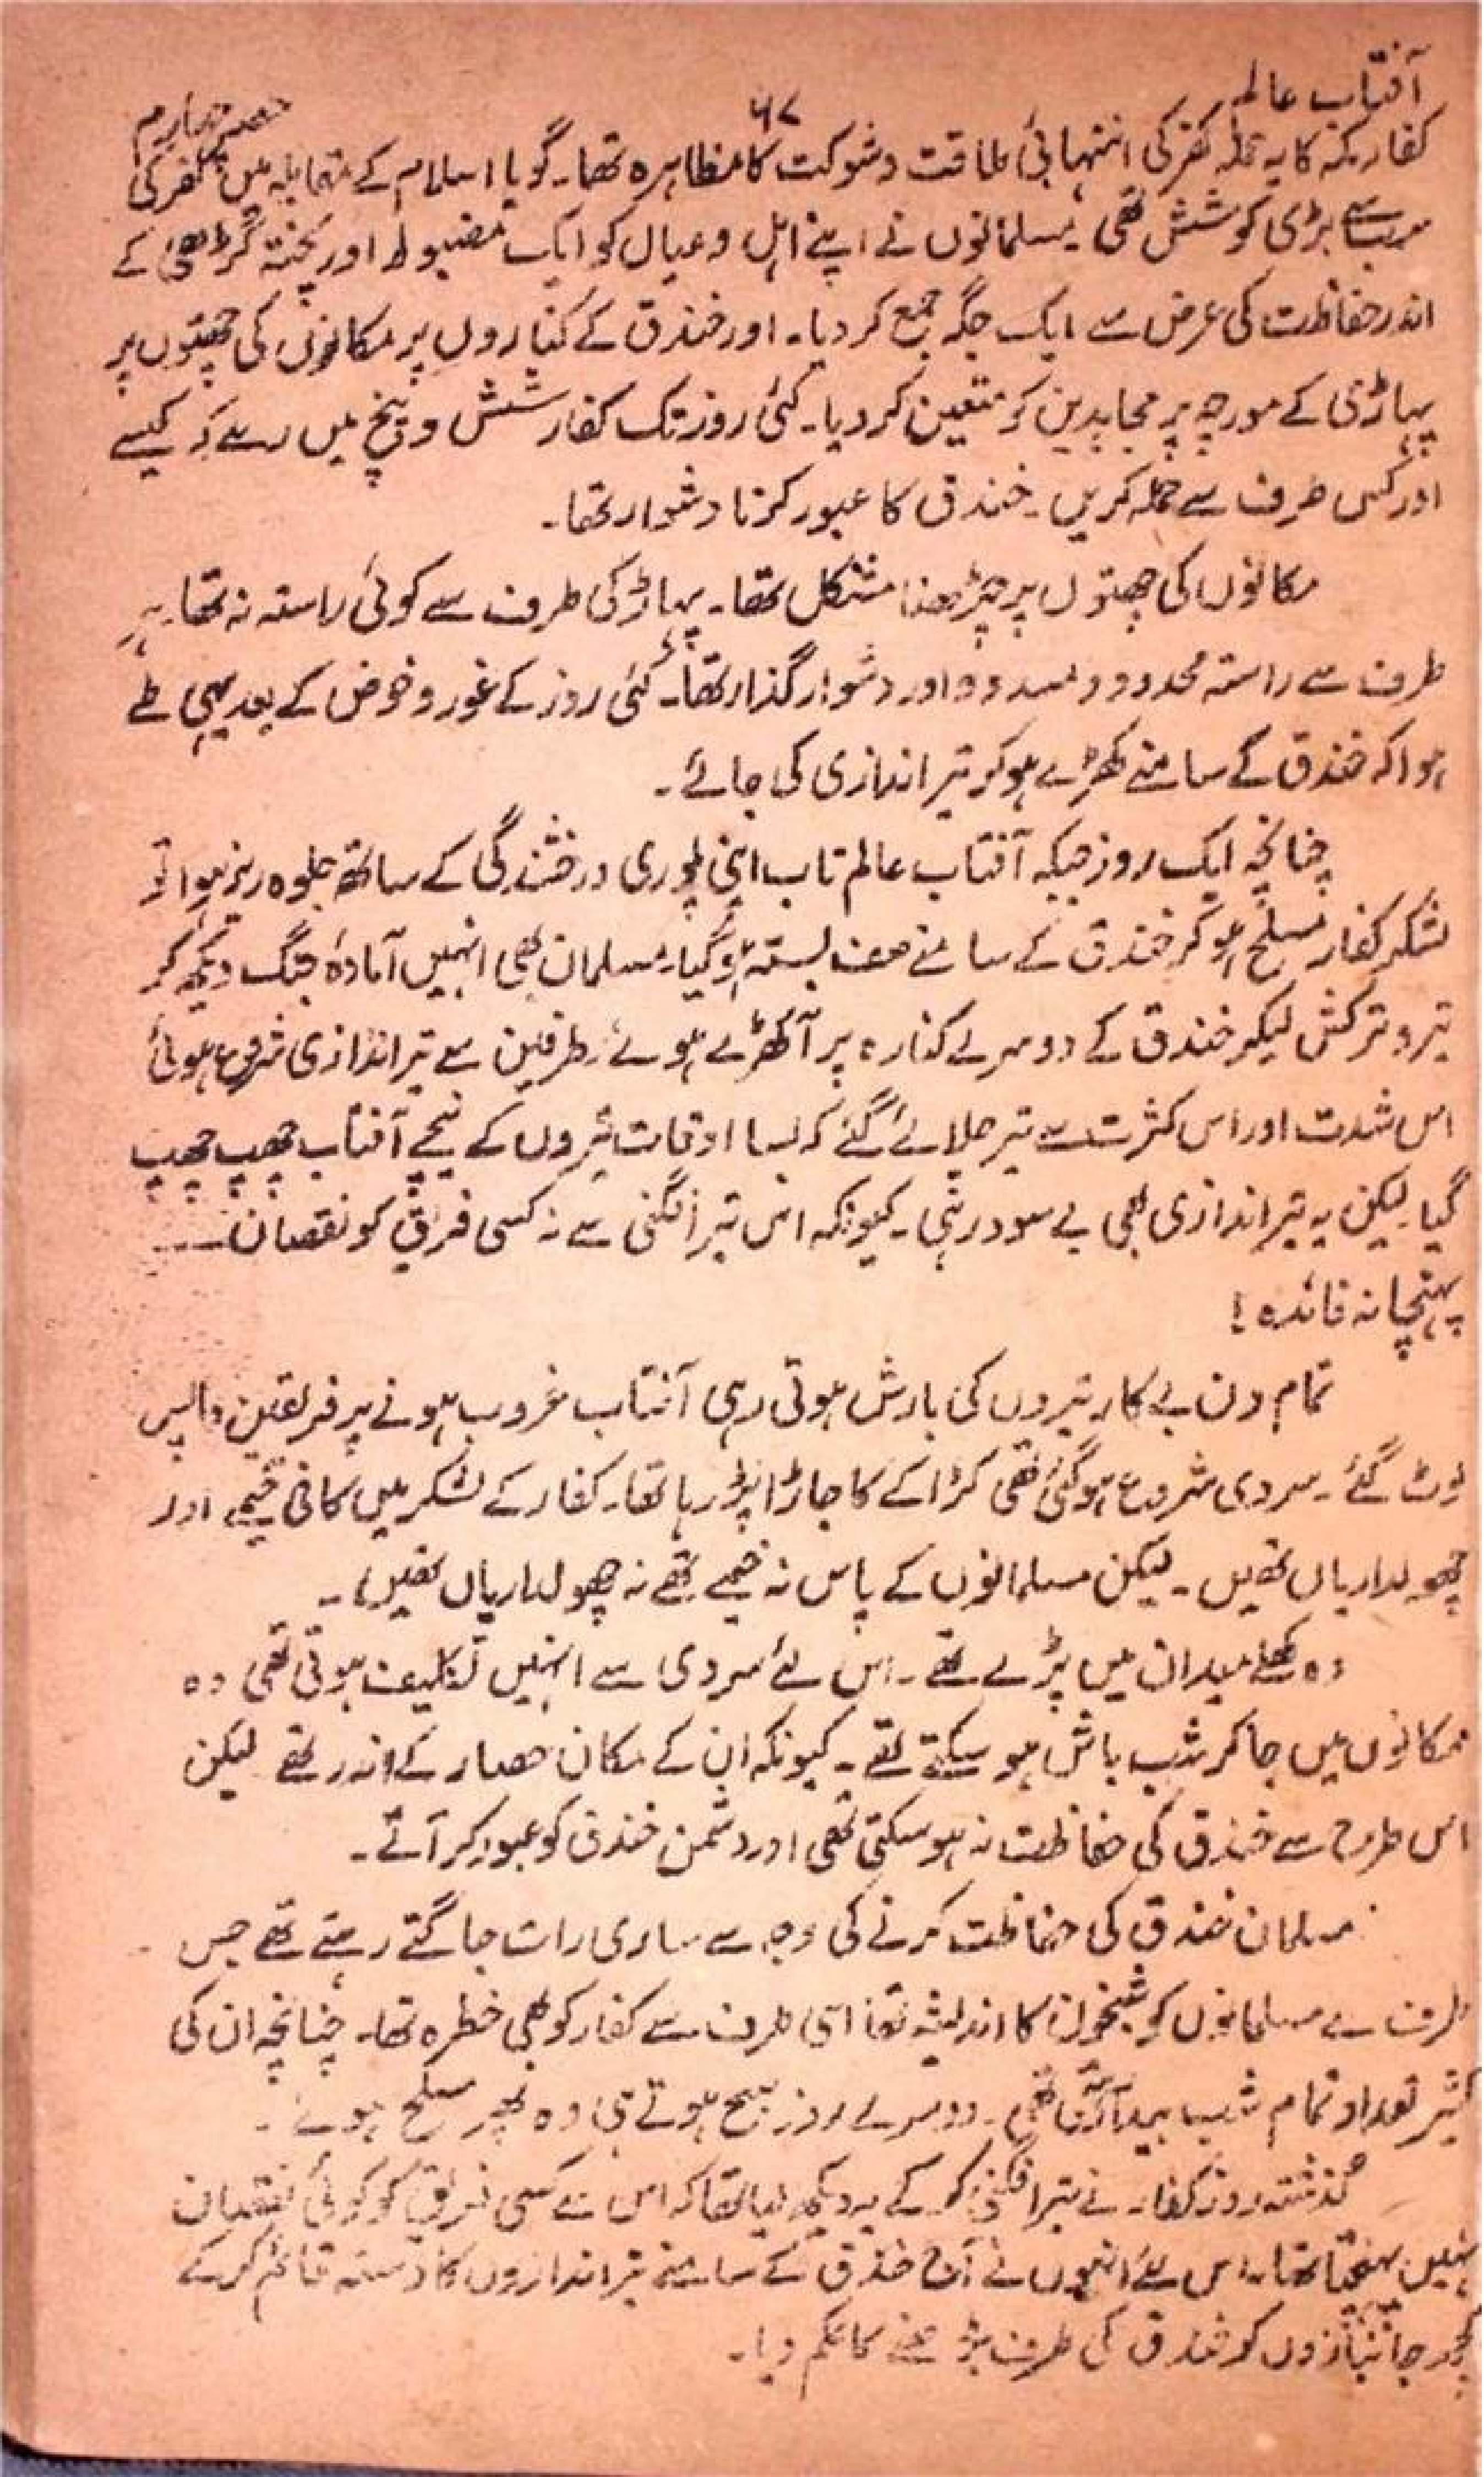 آفتاب عالم
۶۷
حصہ چہارم
کفار مکہ کا یہ حملہ کفر کی انتہائی طاقت و شوکت کا مظاہرہ تھا۔ گویا اسلام کے مقابلہ میں کفر کی
سب سے بڑی کوشش تھی مسلمانوں نے اپنے اہل و عیال کو ایک مضبوط اور پختہ گڑھی کے
اندر حفاظت کی غرض سے ایک جگہ جمع کر دیا۔ اور خندق کے کناروں پر مکانوں کی چھتوں پر
پہاڑی کے مورچہ پر مجاہدین کو متعین کر دیا۔ کئی روز تک کفار شش و پنج میں رہے کہ کیسے
اور کس طرف سے حملہ کریں۔ خندق کا عبور کرنا دشوار تھا۔
مکانوں کی چھتوں پر چڑھنا مشکل تھا۔ پہاڑ کی طرف سے کوئی راستہ نہ تھا۔ ہر
طرف سے راستہ محدود و مسدود اور دشوار گذار تھا۔ کئی روز کے غور و خوض کے بعد یہی طے
ہوا کہ خندق کے سامنے کھڑے ہو کر تیر اندازی کی جائے۔
چنانچہ ایک روز جبکہ آفتاب عالم تاب اپنی پوری درخشندگی کے ساتھ جلوہ ریز ہوا تو
لشکر کفار مسلح ہو کر خندق کے سامنے صف بستہ ہو گیا۔ مسلمان بھی انہیں آمادۂ جنگ دیکھ کر
تیر و ترکش لیکر خندق کے دوسرے کنارہ پر آکھڑے ہوئے۔ طرفین سے تیر اندازی شروع ہوئی
اس شدت اور اس کثرت سے تیر چلائے گئے کہ بسا اوقات تیروں کے نیچے آفتاب چھپ چھپ
گیا۔ لیکن یہ تیر اندازی بھی بے سود رہی۔ کیونکہ اس تیر افگنی سے نہ کسی فریق کو نقصان
پہنچا نہ فائدہ!
تمام دن بے کار تیروں کی بارش ہوتی رہی آفتاب غروب ہونے پر فریقین واپس
لوٹ گئے۔ سردی شروع ہو گئی تھی کڑاکے کا جاڑا پڑ رہا تھا۔ کفار کے لشکر میں کافی خیمے اور
چھولداریاں تھیں۔ لیکن مسلمانوں کے پاس نہ خیمے تھے نہ چھولداریاں تھیں۔
وہ کھلے میدان میں پڑے تھے۔ اس لئے سردی سے انہیں تکلیف ہوتی تھی وہ
مکانوں میں جا کر شب باش ہو سکتے تھے۔ کیونکہ ان کے مکان حصار کے اندر تھے لیکن
اس طرح سے خندق کی حفاظت نہ ہو سکتی تھی اور دشمن خندق کو عبور کر آتے۔
مسلمان خندق کی حفاظت کرنے کی وجہ سے ساری رات جاگتے رہتے تھے جس
طرف سے مسلمانوں کو شبخون کا اندیشہ تھا اسی طرف سے کفار کو بھی خطرہ تھا۔ چنانچہ ان کی
کثیر تعداد تمام شب بیدار رہتی تھی۔ دوسرے روز صبح ہوتے ہی وہ پھر مسلح ہوئے۔
گذشتہ روز کفار نے تیر افگنی کر کے یہ دیکھ لیا تھا کہ اس سے کسی فریق کو کوئی نقصان
نہیں پہنچتا تھا۔ اس لئے انہوں نے آج خندق کے سامنے تیر اندازوں کا دستہ قائم کر کے
کچھ جانبازوں کو خندق کی طرف بڑھنے کا حکم دیا۔